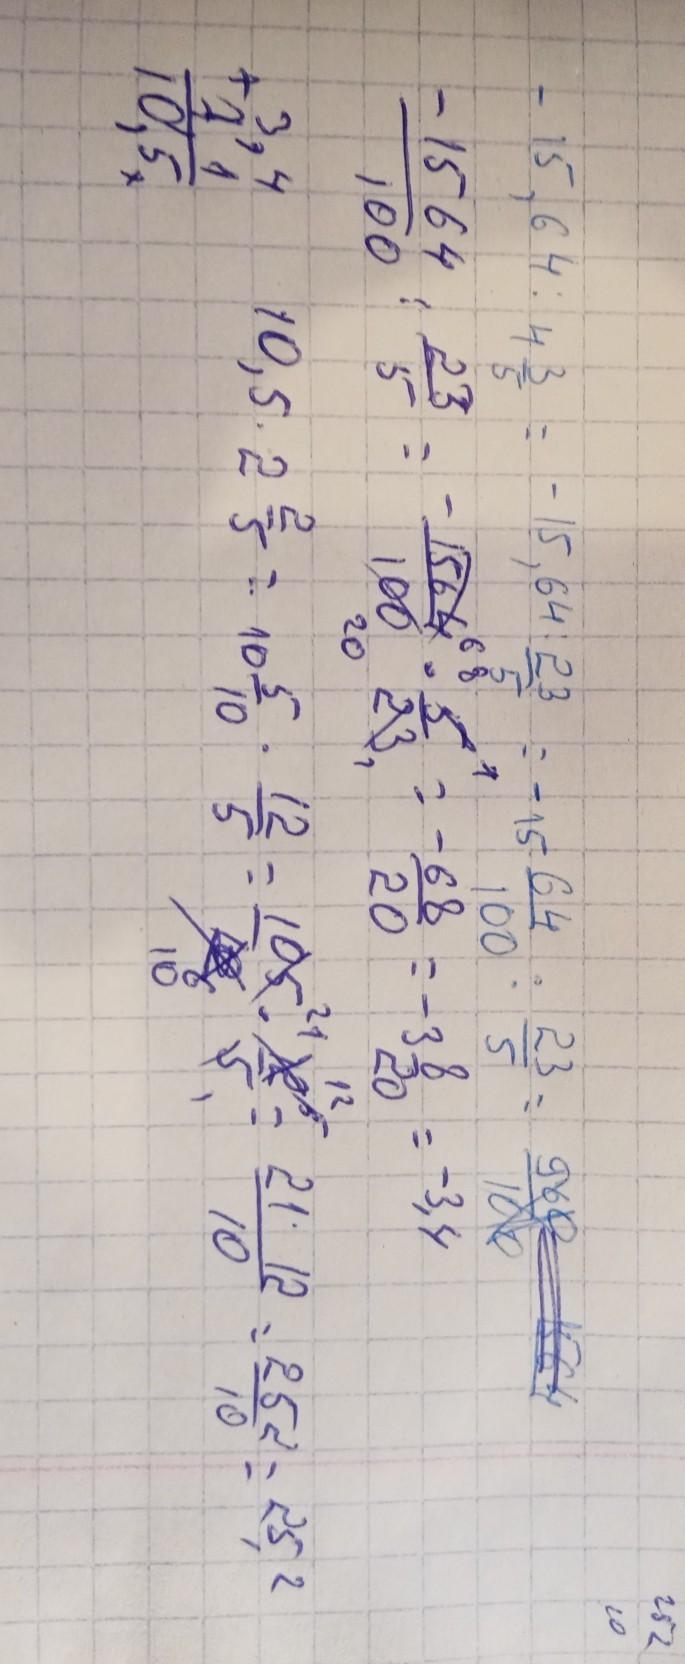 252
10
- 15,64 : 4 3/5 = - 15,64 : 23/5 = - 15 64/100 : 23/5 =
- 1564/100 : 23/5 = - 1564/100 · 5/23 = - 68/20 = - 3 8/20 = - 3,4
10,5 · 2 2/5 = 10 5/10 · 12/5 = 105/10 · 12/5 = 21 · 12/10 = 252/10 = 25,2
3,4
+ 7,1
10,5